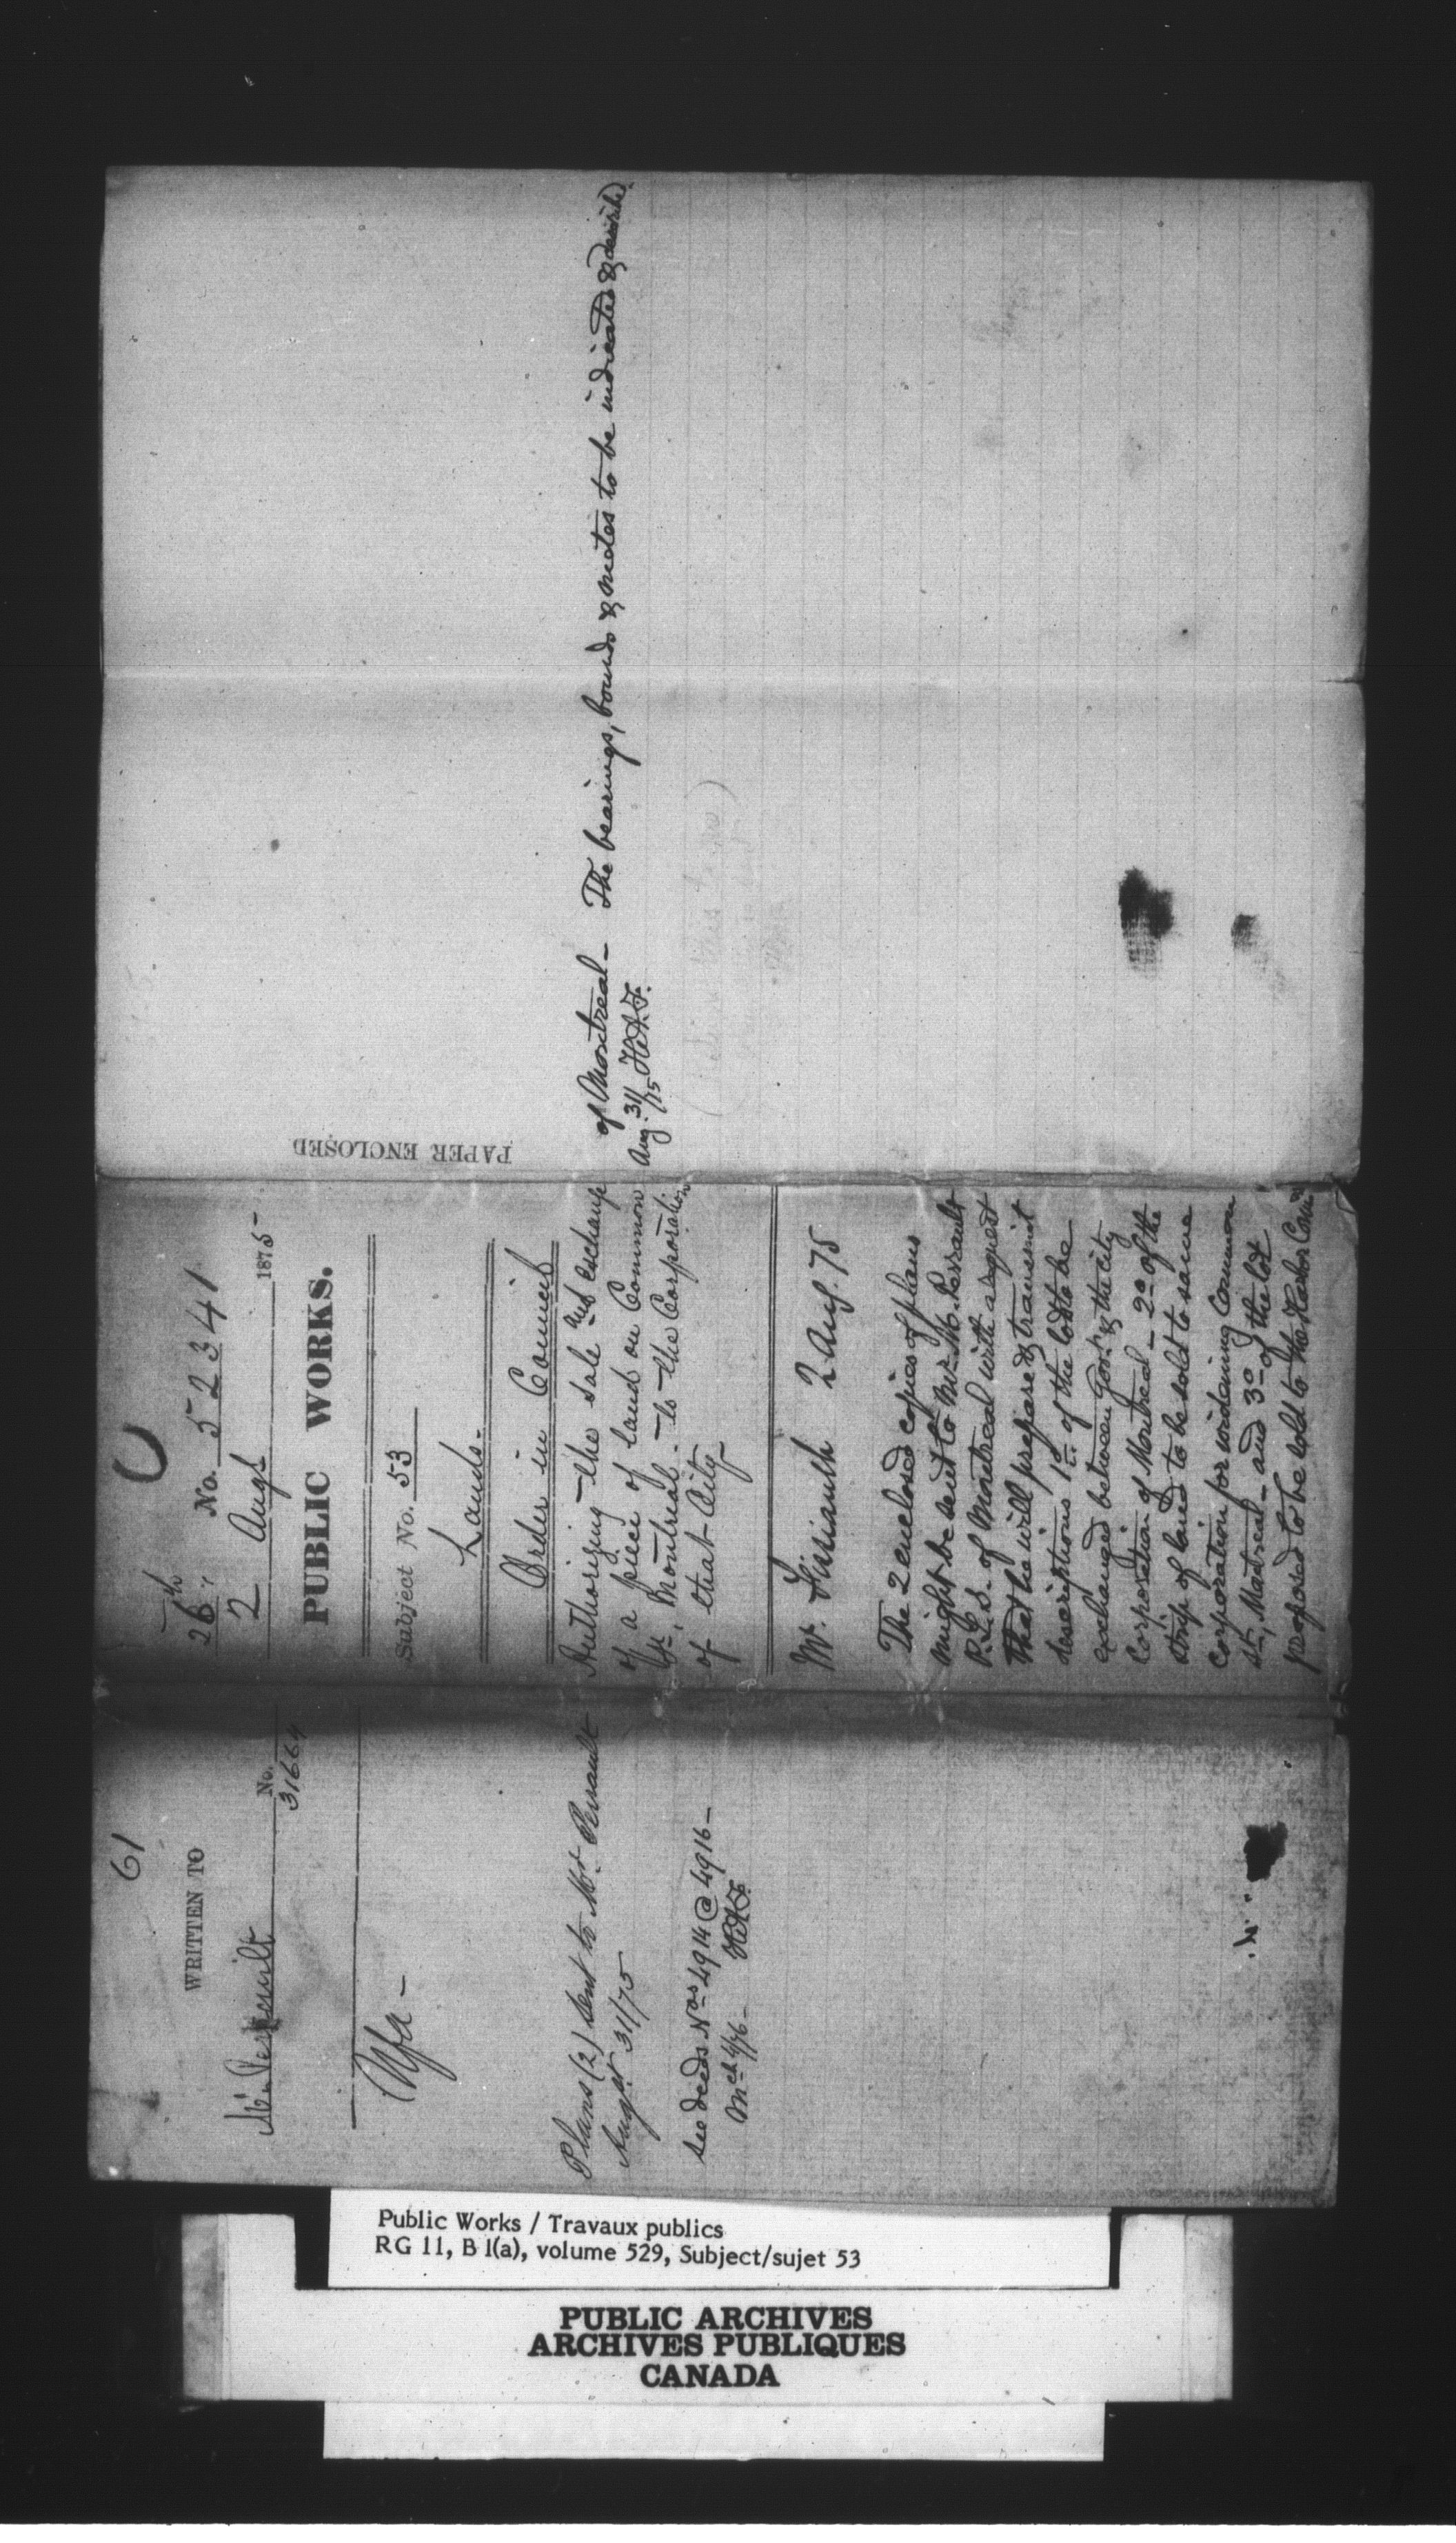 61
WRITTEN TO
No.
Mr. Perrault 31664
Plans (2) sent to Mr. Perrault
Augst 31/75
See deeds Nos 4914 @ 4916 –
Mch 4/76 – H.A.F.
26th No. 52341
2 Augt 1875-
PUBLIC WORKS.
Subject No. 53
Lands.
Order in Council
Authorizing the sale and exchange
of a piece of land on Common
St., Montreal – to the Corporation
of that City
Mr. Fissiault 2 Aug. 75
The 2 enclosed copies of plans
might be sent to Mr. M. Perrault
P.L.S. of Montreal with a request
that he will prepare & transmit
descriptions 1o of the lots to be
exchanged between Govt. & the city
corporation of Montreal – 2o of the
strip of land to be sold to same
corporation for widening Common
St., Montreal – and 3o of the lot
proposed to be sold to the Harbor Comrs
of Montreal – The bearings, bounds & metes to be indicated
Aug. 31/75 H.A.F.
PAPER ENCLOSED
Public Works / Travaux publics
RG 11, B 1(a), volume 529, Subject/sujet 53
PUBLIC ARCHIVES
ARCHIVES PUBLIQUES
CANADA